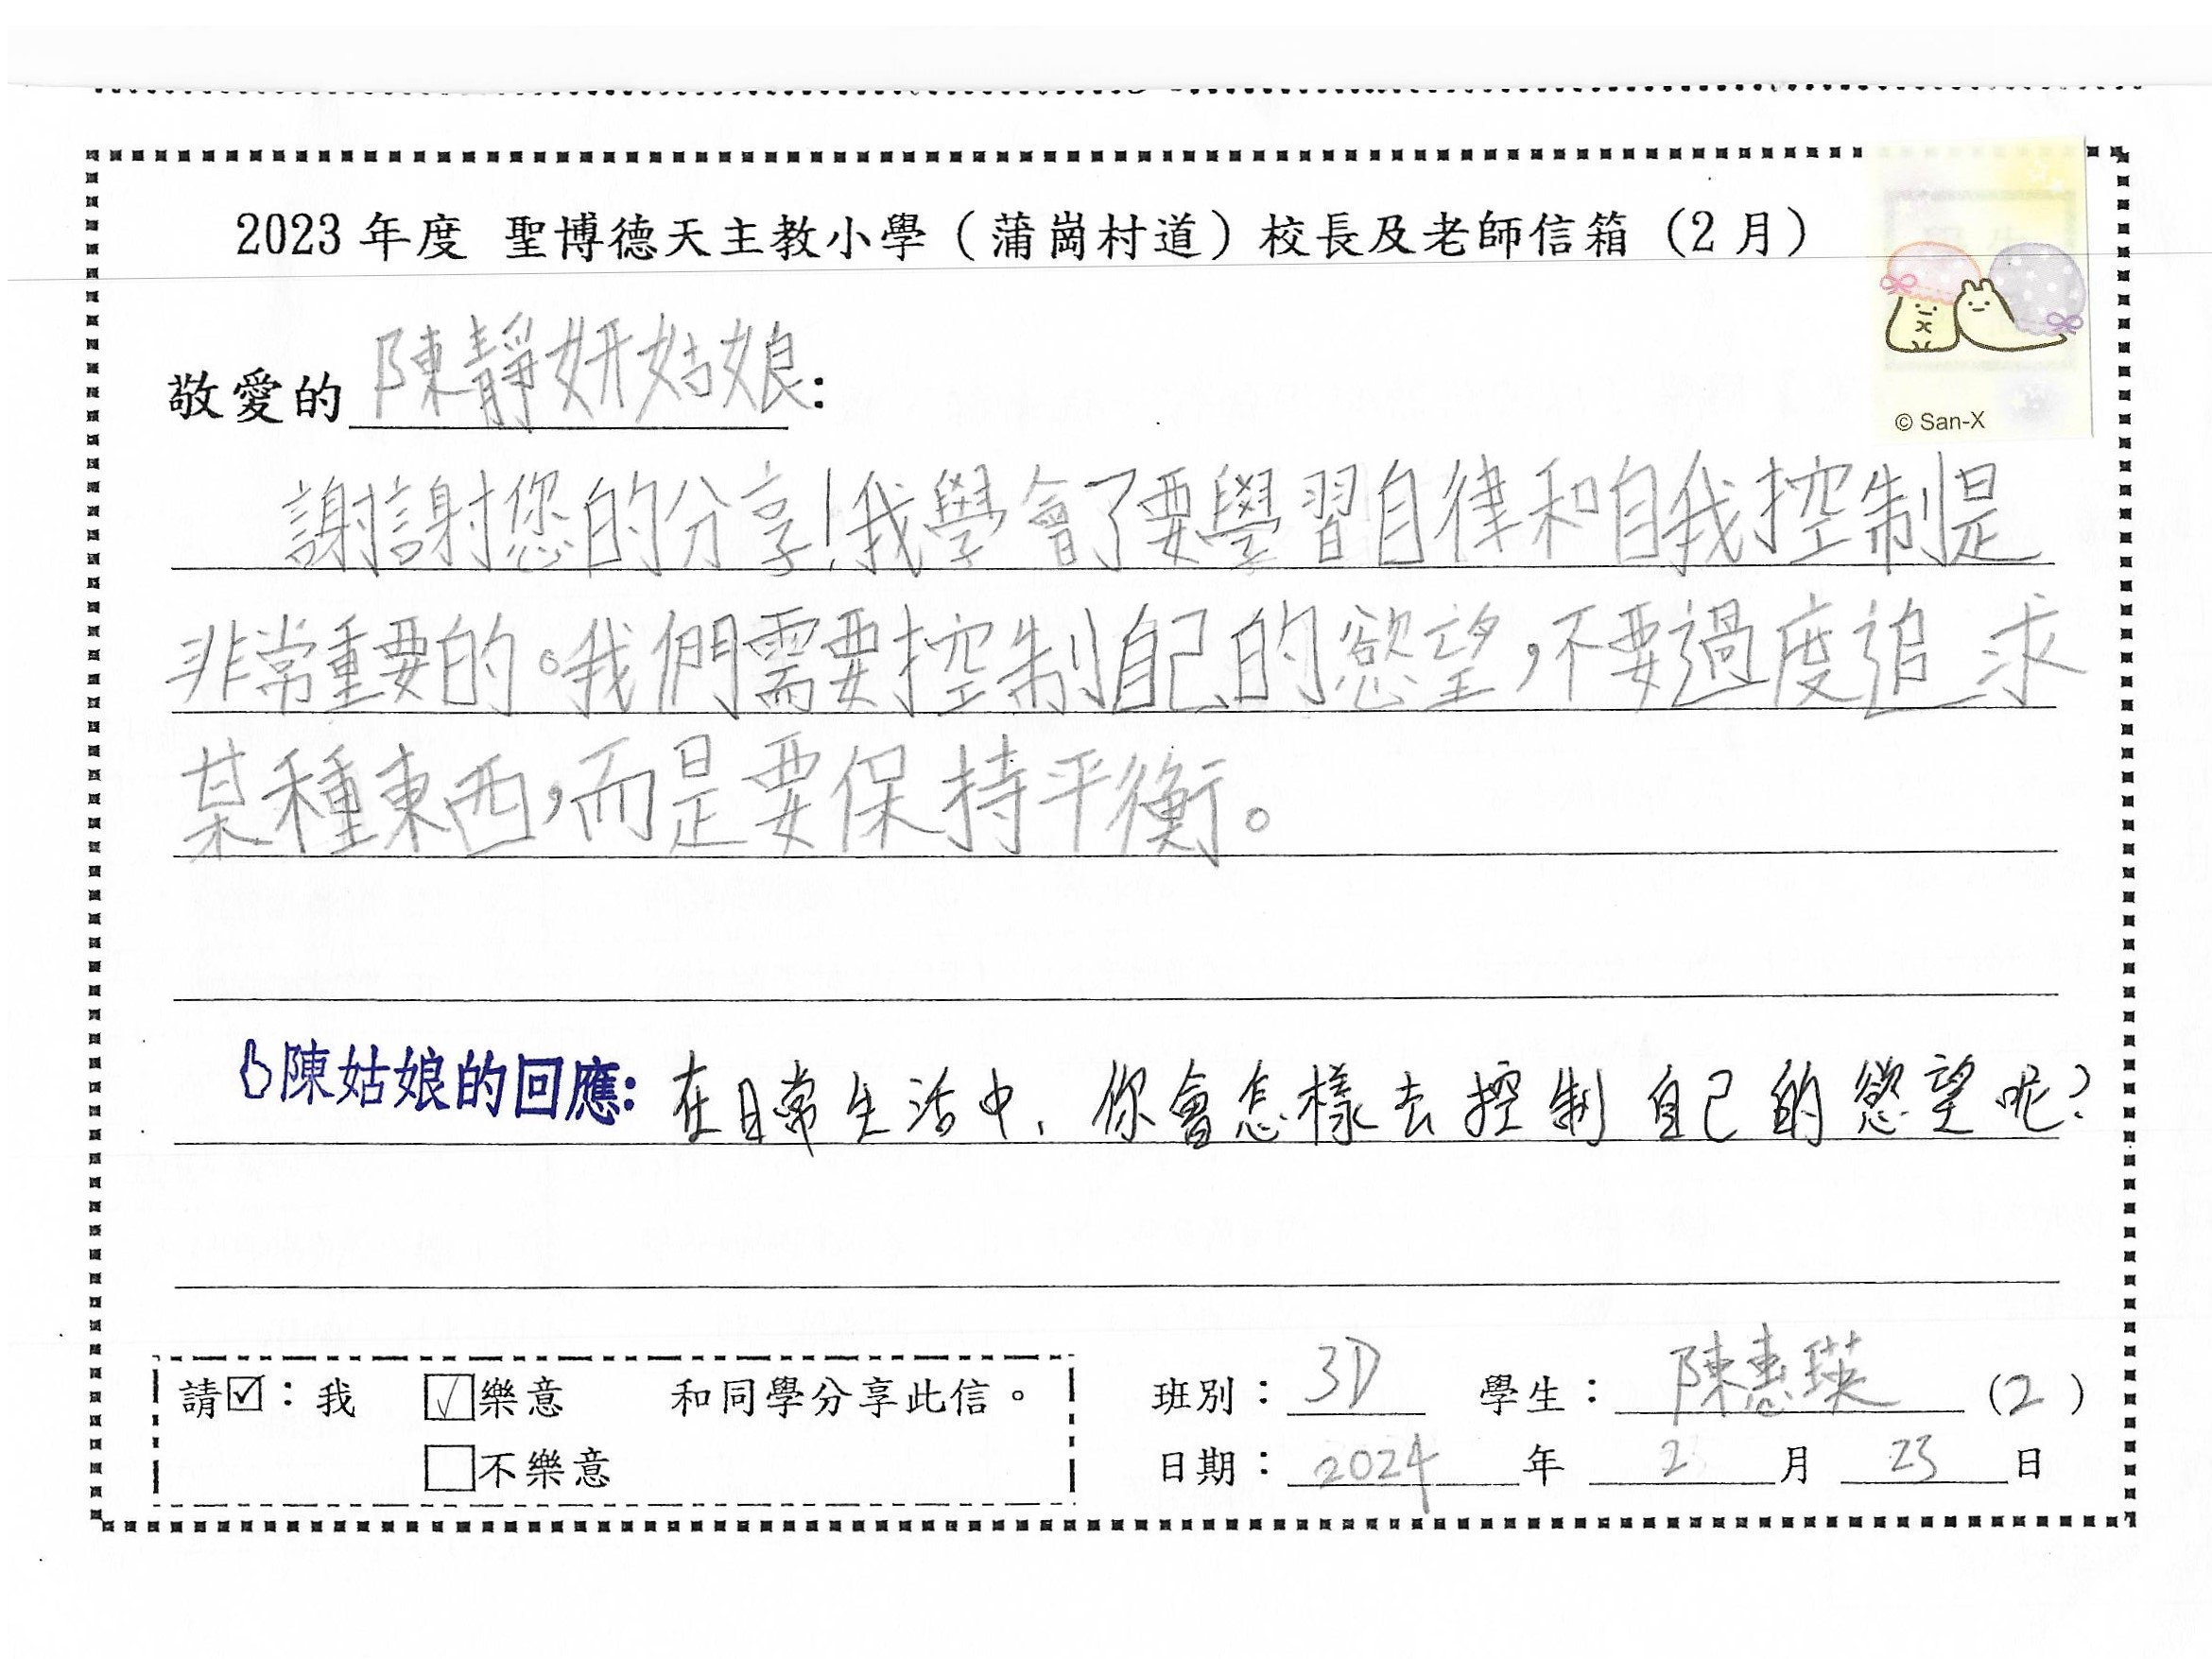 2023 年度 聖博德天主教小學（蒲崗村道）校長及老師信箱（2 月）
敬愛的 陳靜妍姑娘：
© San-X
謝謝您的分享！我學會了要學習自律和自我控制是
非常重要的。我們需要控制自己的慾望，不要過度追求
某種東西，而是要保持平衡。
陳姑娘的回應：在日常生活中，你會怎樣去控制自己的慾望呢？
請☑：我 ☑樂意 和同學分享此信。
□不樂意
班別：3D 學生：陳惠瑛（2）
日期：2024 年 2 月 23 日